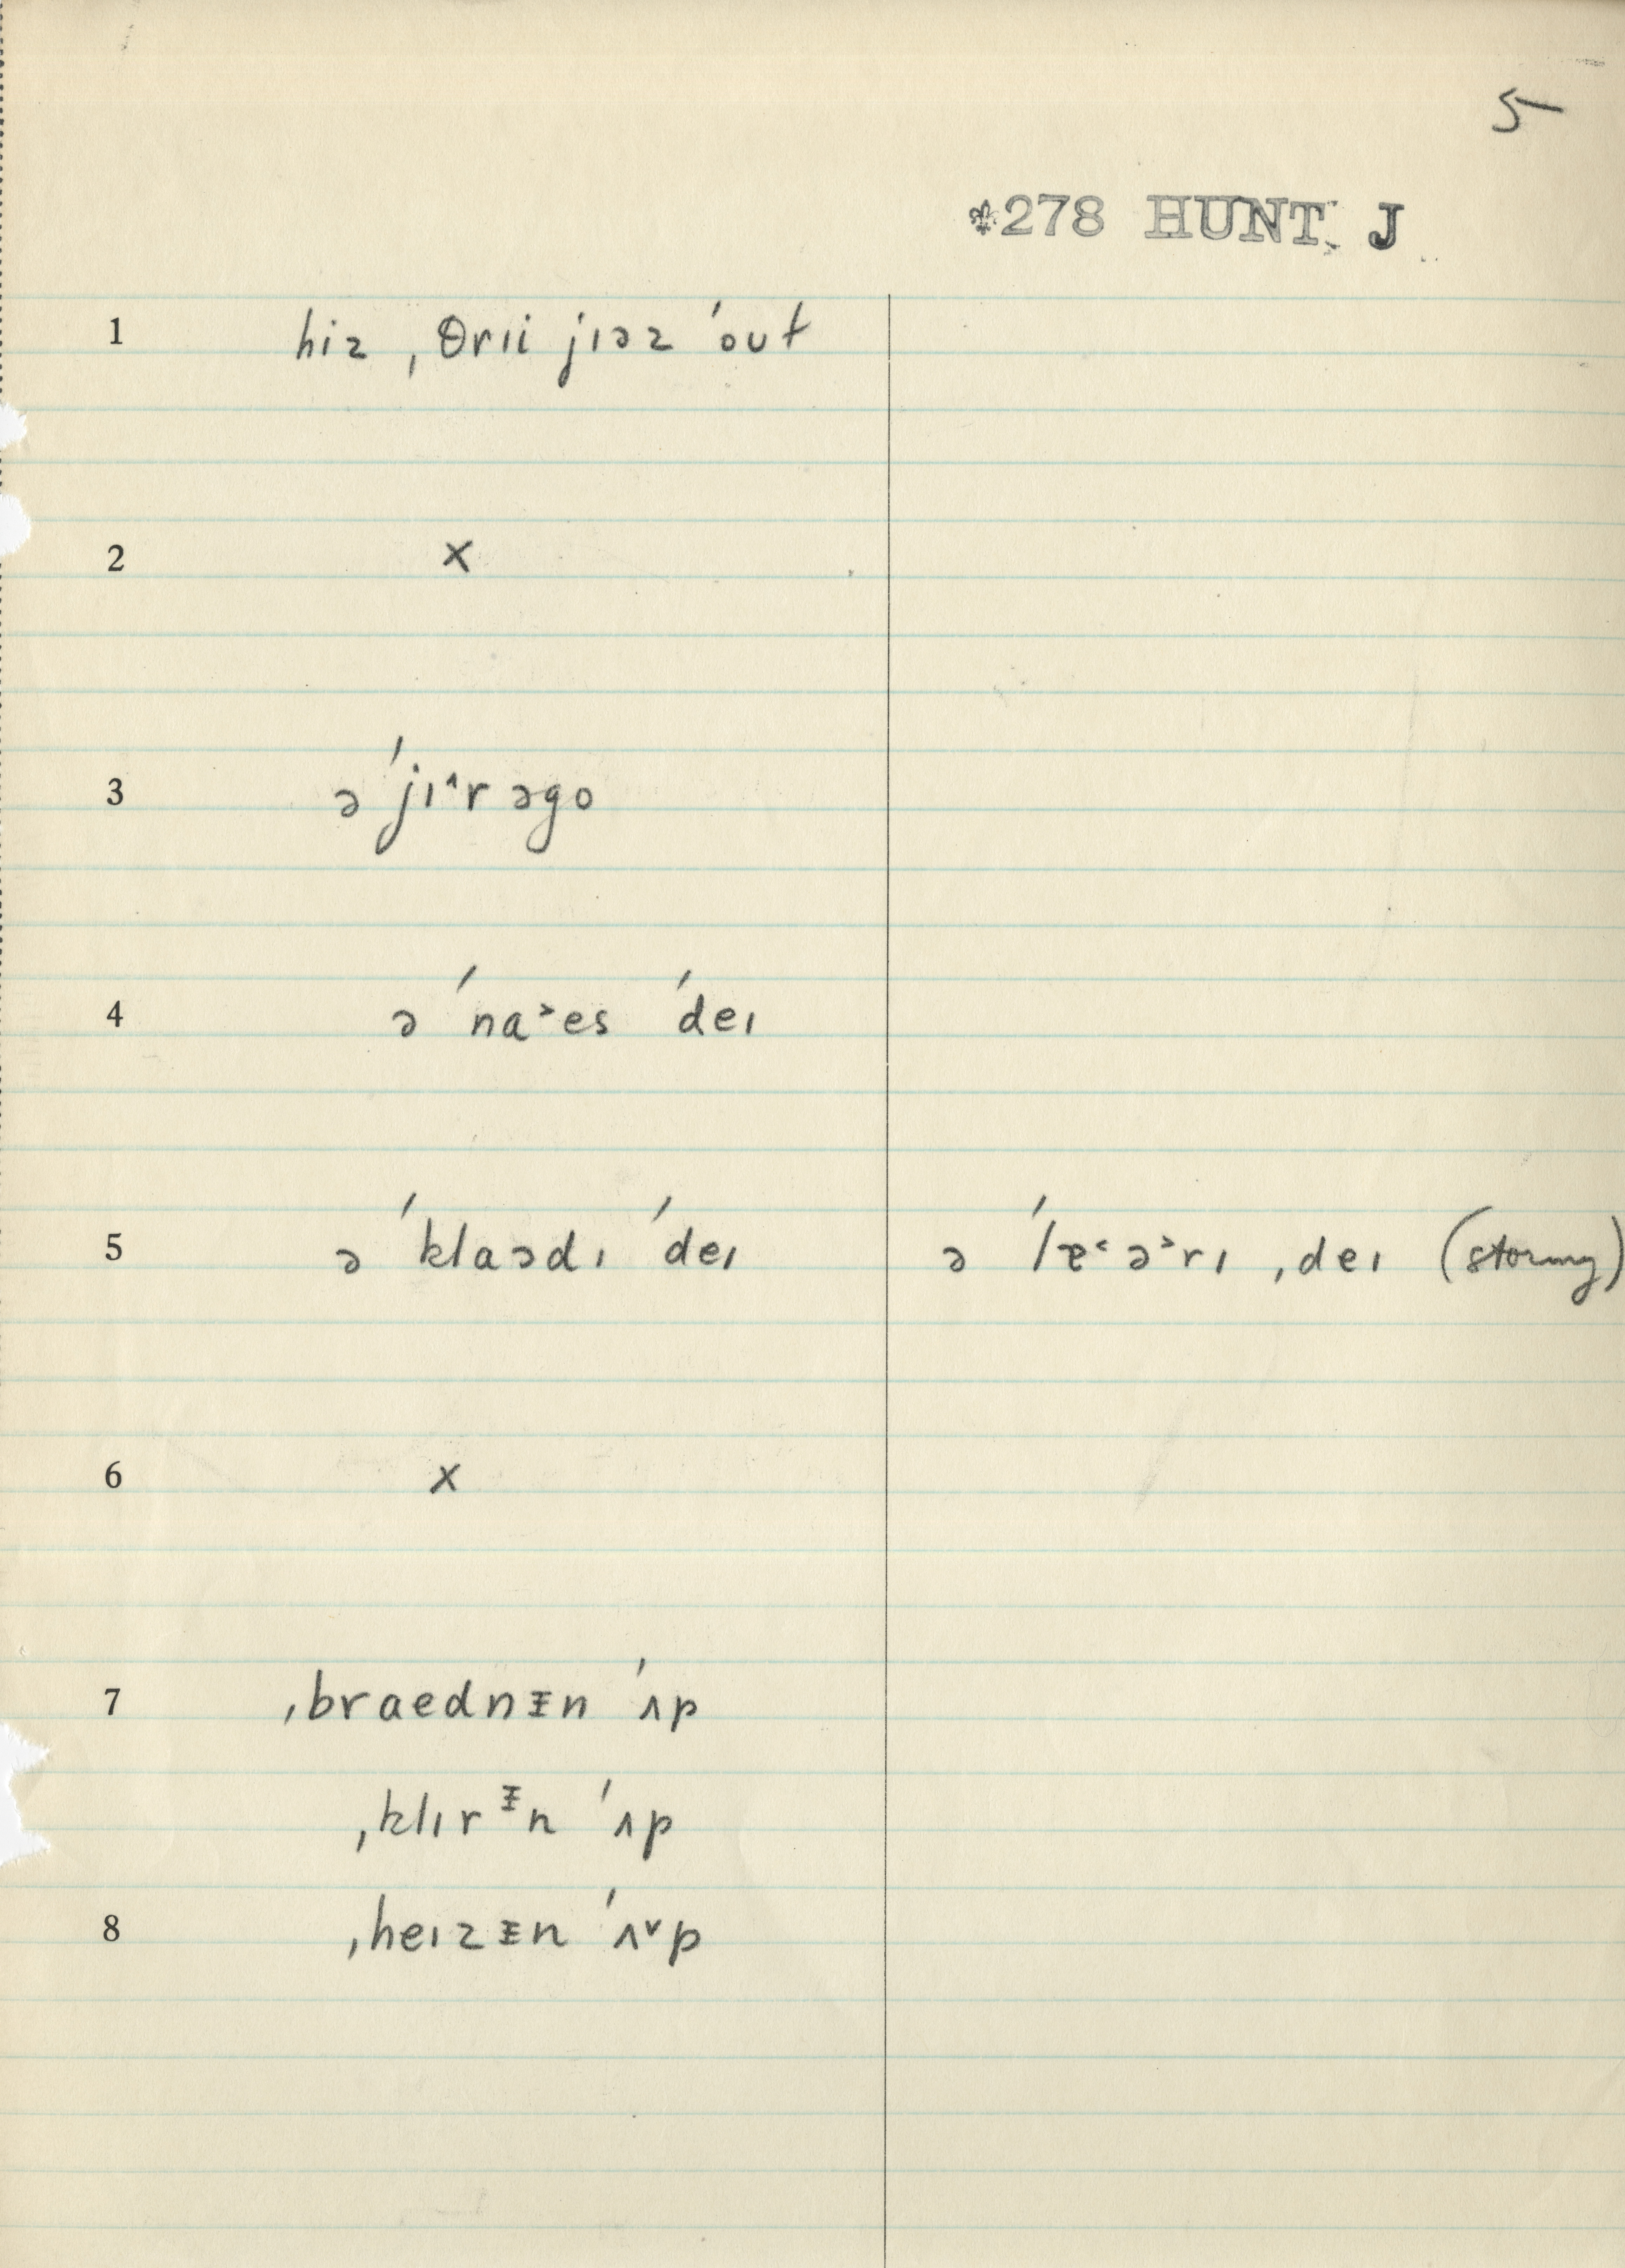 5
*278 HUNT, J
1 hiz ˌθrɪi jɪəz ˈout
2 x
3 ə ˈjɪ^r əgo
4 ə ˈna˃es ˈdeɪ
5 ə ˈklaədɪ ˈdeɪ ə ˈlæ˂ə˃rɪ ˌdeɪ (stormy)
6 x
7 ˌbraednᵻn ˈʌp
ˌklɪrᵻn ˈʌp
8 ˌheɪzᵻn ˈʌ˅p